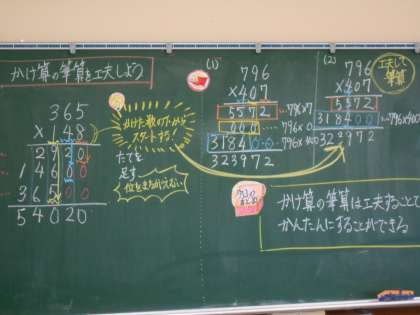 かけ算の筆算を工夫しよう
365
×148
2920
14600
36500
54020
かけた数の下から
スタートする!
たてを
足す
位をまちがえない
(1)
796
×407
5572 796×7
000 796×0
318400 796×400
323972
(2)
工夫して
筆算
796
×407
5572
318400
323972
かけ算の筆算は工夫することで
かんたんにすることができる